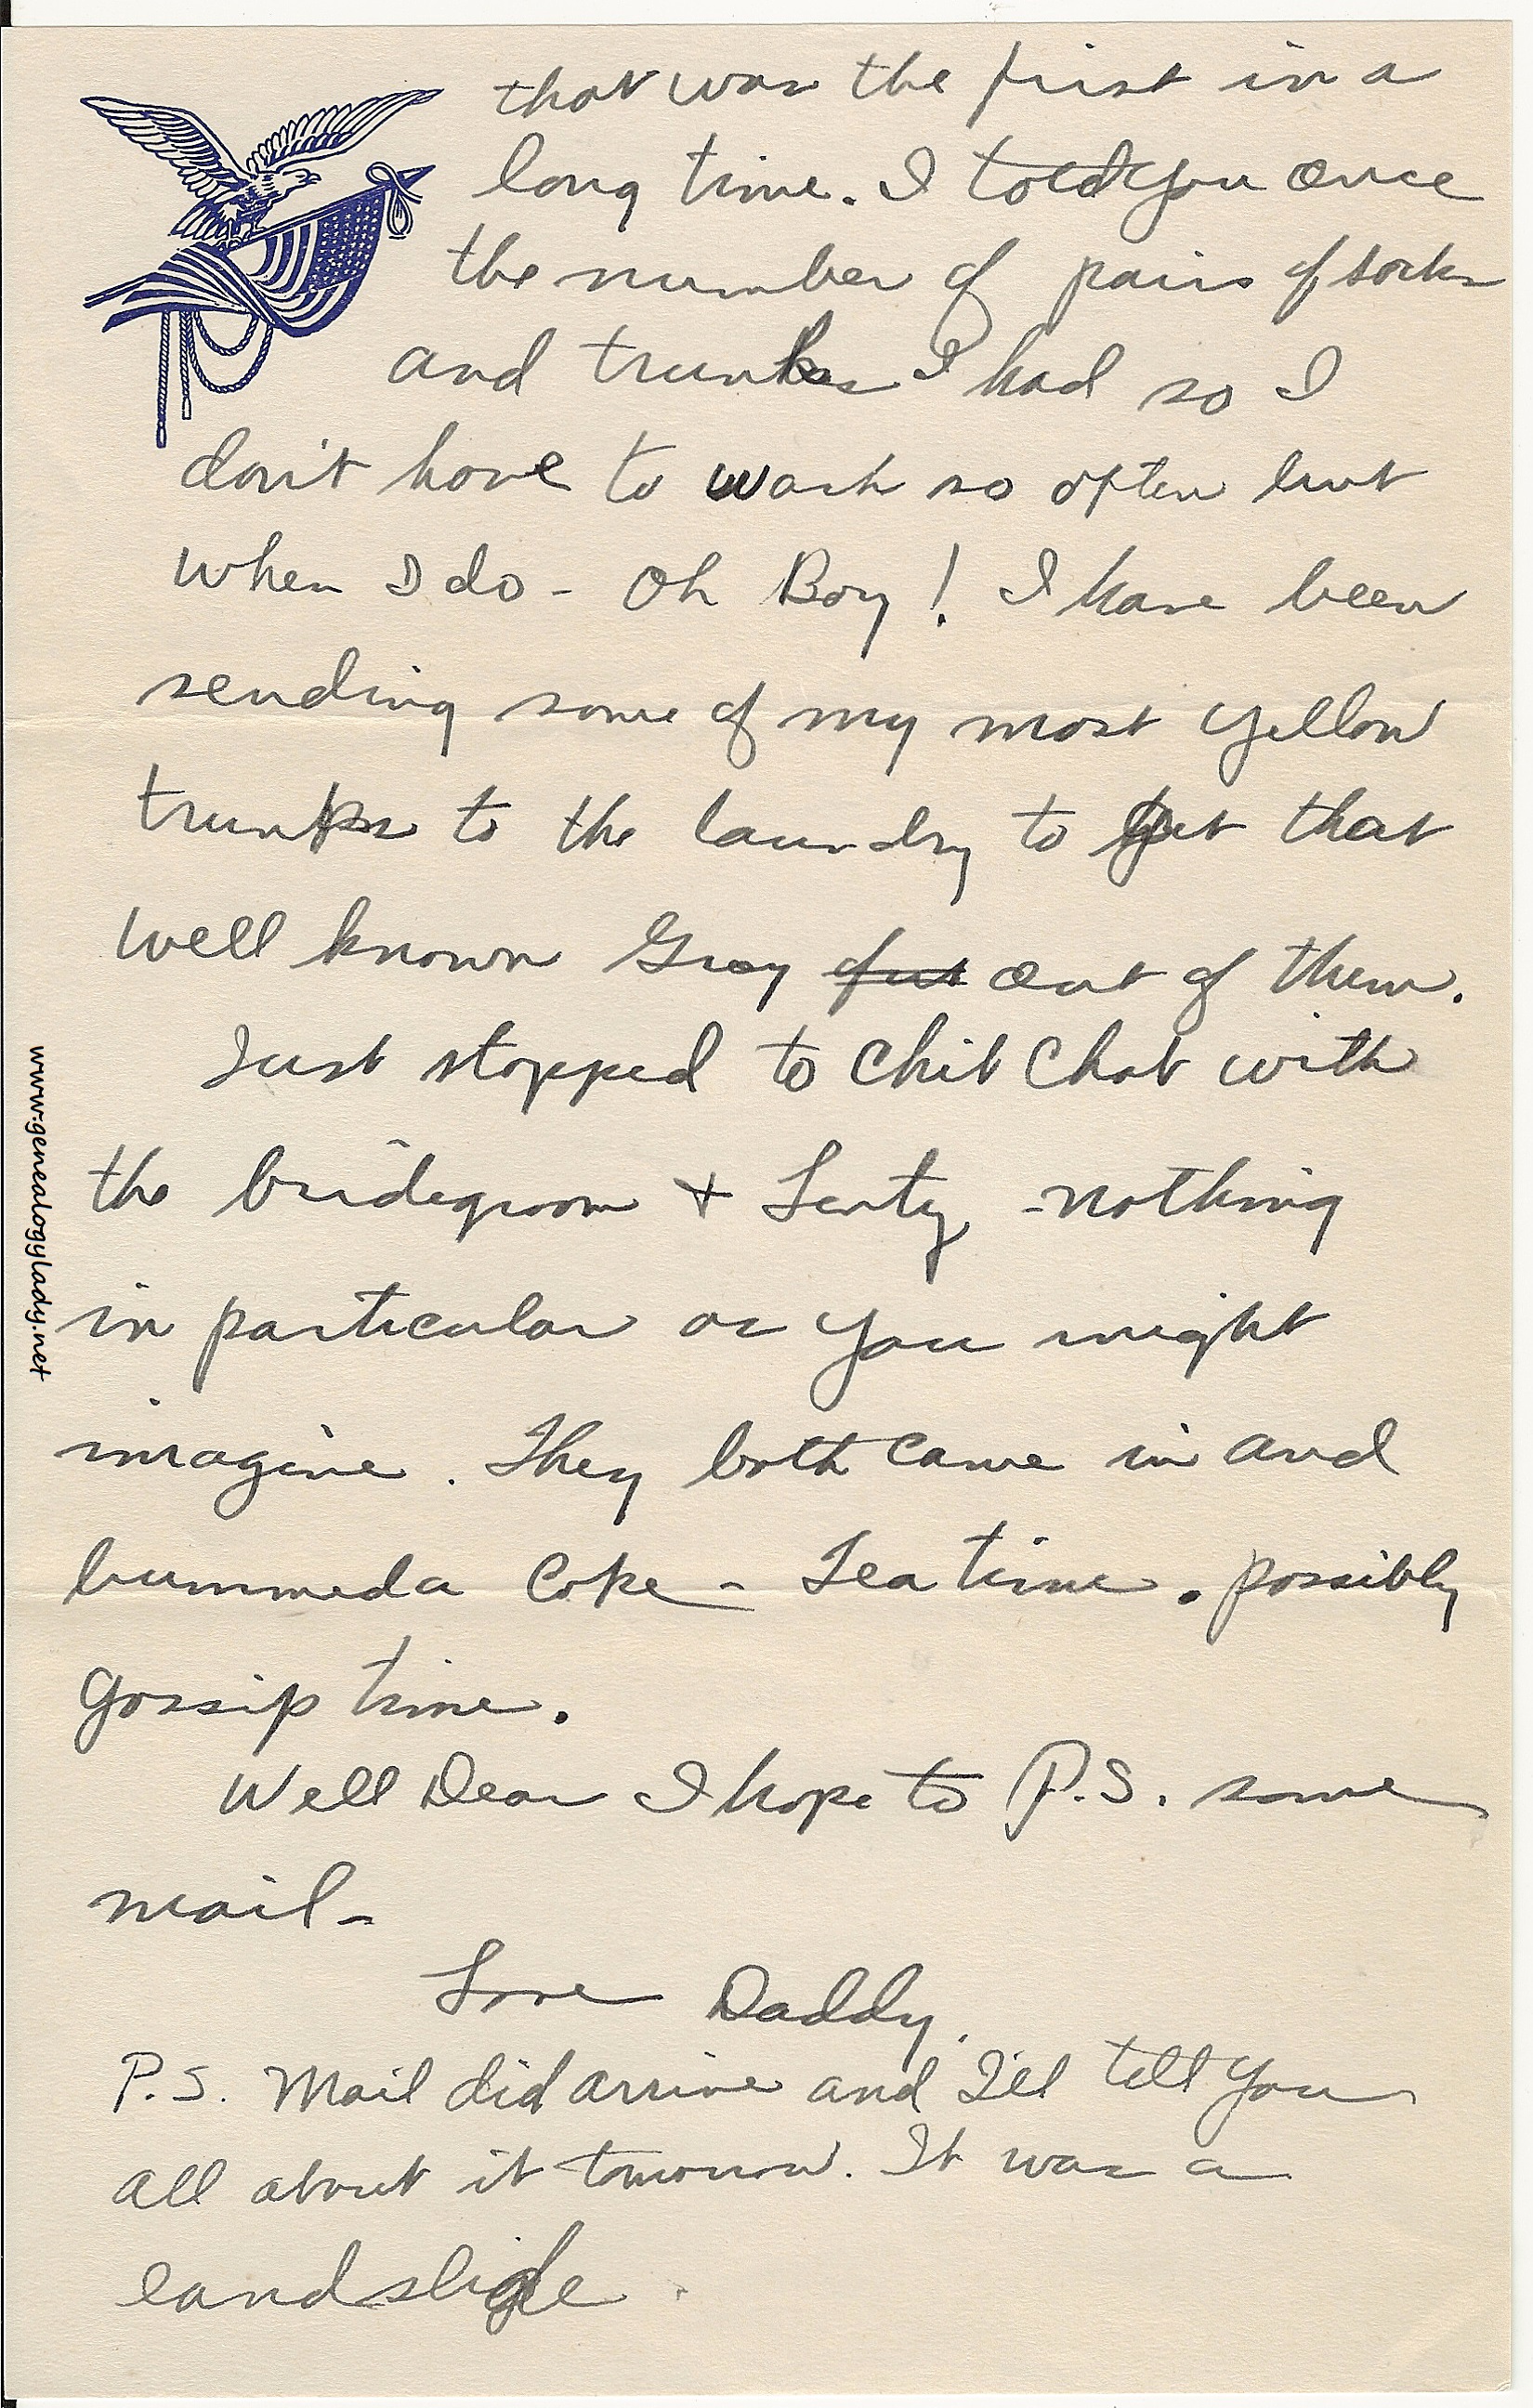 that was the first in a
long time. I told you once
the number of pairs of socks
and trunks I had so I
don't have to wash so often but
when I do - Oh Boy! I have been
sending some of my most yellow
trunks to the laundry to get that
well known Gray out of them.
Just stopped to Chit Chat with
the bridegroom + Lenty - nothing
in particular as you might
imagine. They both came in and
bummed a Coke - Tea time. possibly
Gossip time.
Well Dear I hope to P.S. some
mail -
Love Daddy.
P.S. Mail did arrive and I'll tell you
all about it tomorrow. It was a
landslide.
www.genealogylady.net